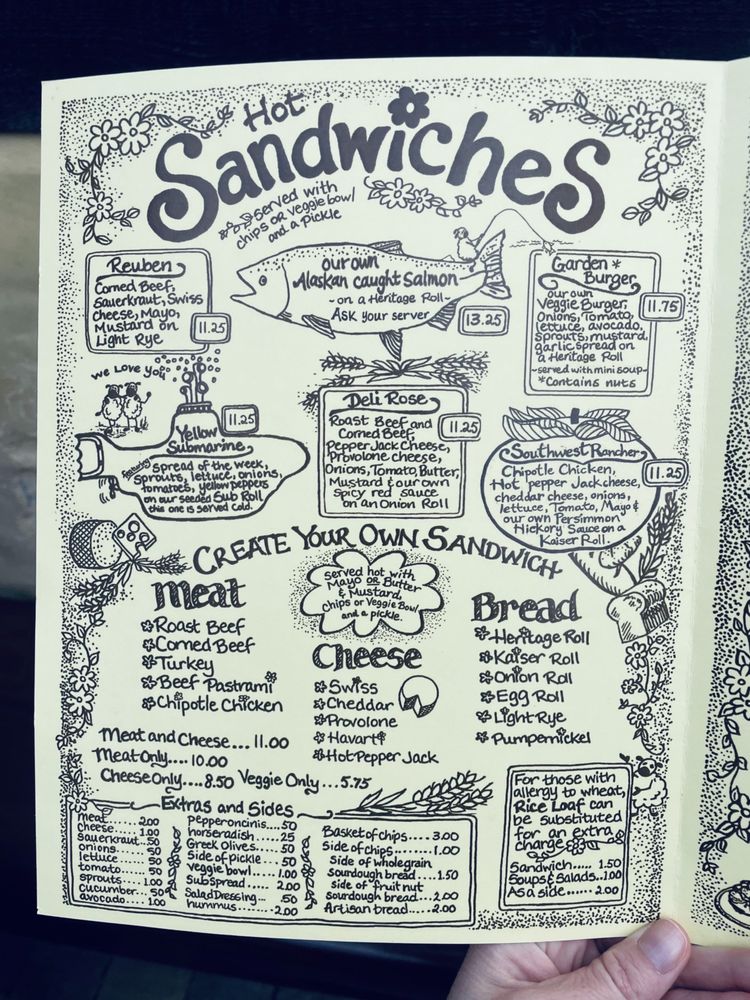 Hot
Sandwiches
served with
chips or veggie bowl
and a pickle
Reuben
Corned Beef,
Sauerkraut, Swiss
Cheese, Mayo,
Mustard on
Light Rye
11.25
our own
Alaskan caught Salmon
- on a Heritage Roll -
Ask your server
13.25
Garden *
Burger
our own
Veggie Burger,
Onions, Tomato,
lettuce, avocado,
sprouts, mustard,
garlic spread on
a Heritage Roll
-served with mini soup-
*Contains nuts
11.75
we Love You
Yellow
Submarine
11.25
featuring
spread of the week,
sprouts, lettuce, onions,
tomatoes, yellow peppers
on our seeded Sub Roll
this one is served cold.
Deli Rose
Roast Beef and
Corned Beef,
Pepper Jack Cheese,
Provolone cheese,
Onions, Tomato, Butter,
Mustard & our own
Spicy red sauce
on an Onion Roll
11.25
Southwest Rancher
Chipotle Chicken,
Hot pepper Jack cheese,
cheddar cheese, onions,
lettuce, Tomato, Mayo &
our own Persimmon
Hickory Sauce on a
Kaiser Roll.
11.25
Create Your Own Sandwich
served hot with
Mayo OR Butter
& Mustard,
Chips or Veggie Bowl
and a pickle.
Meat
Roast Beef
Corned Beef
Turkey
Beef Pastrami
Chipotle Chicken
Cheese
Swiss
Cheddar
Provolone
Havarti
Hot Pepper Jack
Bread
Heritage Roll
Kaiser Roll
Onion Roll
Egg Roll
Light Rye
Pumpernickel
Meat and Cheese... 11.00
Meat Only.... 10.00
Cheese Only.... 8.50 Veggie Only... 5.75
Extras and Sides
meat....... 2.00
cheese..... 1.00
sauerkraut .50
onions..... .50
lettuce.... .50
tomato..... .50
sprouts... 1.00
cucumber.. .50
avocado.. 1.00
Pepperoncinis.. .50
horseradish.... .25
Greek Olives.... .50
Side of pickle... .50
veggie bowl... 1.00
Sub Spread... 2.00
Salad Dressing... .50
hummus...... 2.00
Basket of chips.... 3.00
side of chips..... 1.00
side of wholegrain
sourdough bread... 1.50
side of fruit nut
sourdough bread... 2.00
Artisan bread.... 2.00
For those with
allergy to wheat,
Rice Loaf can
be substituted
for an extra
charge
Sandwich..... 1.50
Soups & Salads.. 1.00
As a side...... 2.00